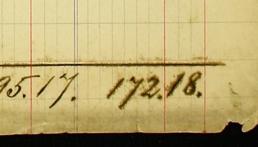 95.17. 172.18.